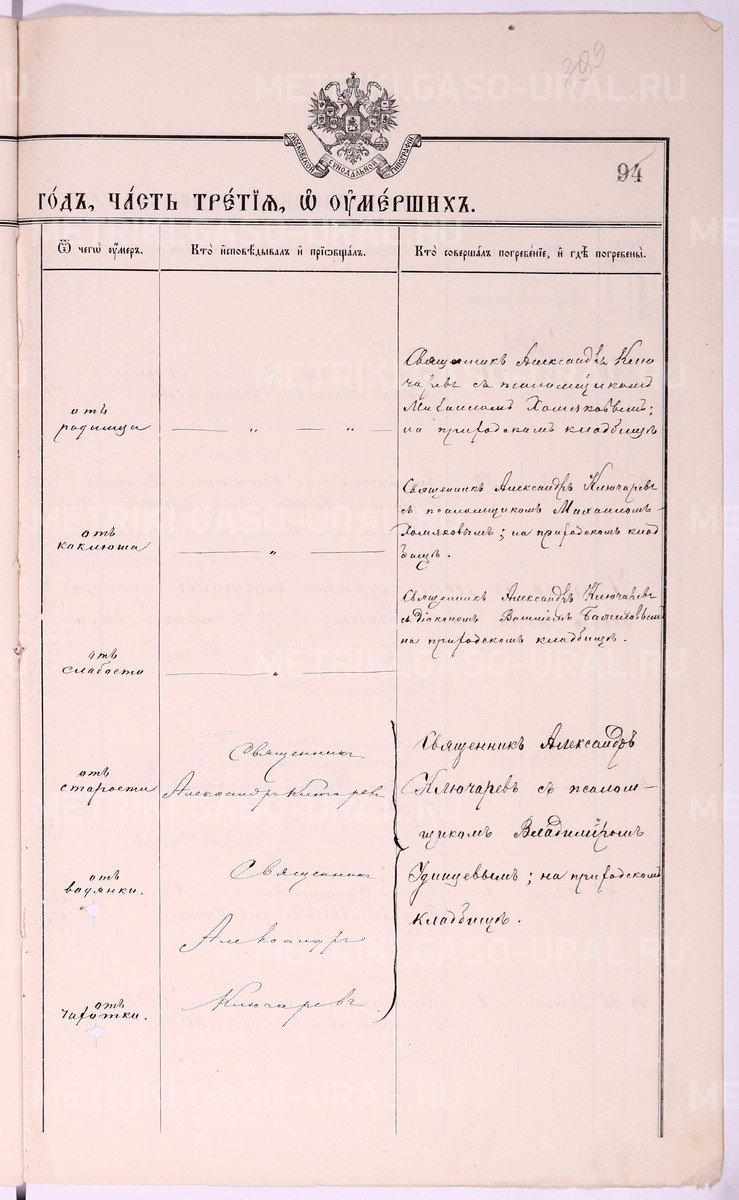 399
METRIKI.GASO-URAL.RU
МОСКОВСКОЙ СѴНОДАЛЬНОЙ ТИПОГРАФІИ
94
го́дъ, ча́сть тре́тїѧ, ѡ҆ ᲂу҆ме́ршихъ.
Ѿ чегѡ̀ ᲂу҆́меръ.
Кто̀ и҆сповѣ́дывалъ и҆ прїѡбща́лъ.
Кто̀ соверша́лъ погребе́нїе, и҆ гдѣ̀ погребены̀.
отъ
родимца
— „ — „ —
Священникъ Александръ Клю
чаревъ съ псаломщикомъ
Михаиломъ Хомяковымъ;
на приходскомъ кладбищѣ
отъ
каклюша
— „ —
Священникъ Александръ Ключаревъ
съ псаломщикомъ Михаиломъ
Хомяковымъ; на приходскомъ клад
бищѣ.
отъ
слабости
— „ —
Священникъ Александръ Ключаревъ
съ діакономъ
на приходскомъ кладбищѣ.
отъ
старости
Священникъ
Александръ Ключаревъ
Священникъ Александръ
Ключаревъ съ псалом-
щикомъ Владиміромъ
Удинцевымъ; на приходскомъ
кладбищѣ.
отъ
вадянки.
Священникъ
Александръ
Ключаревъ
отъ
чахотки.